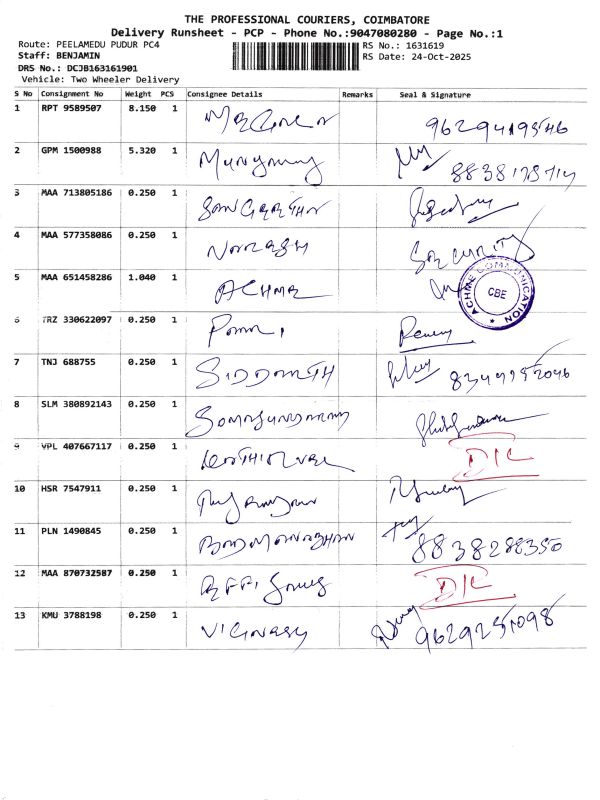 THE PROFESSIONAL COURIERS, COIMBATORE
Delivery Runsheet - PCP - Phone No.:9047080280 - Page No.:1
Route: PEELAMEDU PUDUR PC4
RS No.: 1631619
Staff: BENJAMIN
RS Date: 24-Oct-2025
DRS No.: DCJB163161901
Vehicle: Two Wheeler Delivery
S No Consignment No Weight PCS Consignee Details Remarks Seal & Signature
1 RPT 9589507 8.150 1
2 GPM 1500988 5.320 1
3 MAA 713805186 0.250 1 SANGEETHA
4 MAA 577358086 0.250 1 SECURITY
5 MAA 651458286 1.040 1 ACHME
ACHME COMMUNICATION CBE
6 TRZ 330622097 0.250 1
7 TNJ 688755 0.250 1 SIDDARTH
8 SLM 380892143 0.250 1 SOMASUNDARAM
9 VPL 407667117 0.250 1 D/C
10 HSR 7547911 0.250 1
11 PLN 1490845 0.250 1 8838288350
12 MAA 870732587 0.250 1 D/C
13 KMU 3788198 0.250 1 VIGNESH 9629251098